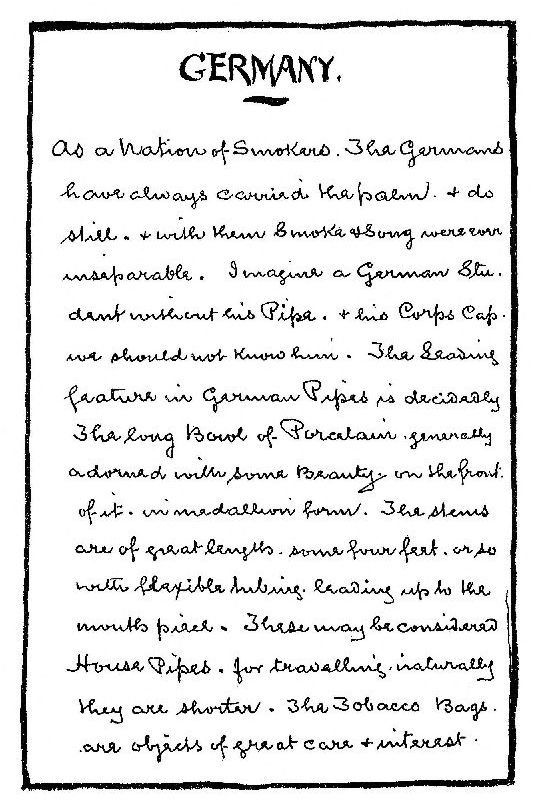 GERMANY.
As a Nation of Smokers. The Germans
have always carried the palm. & do
still. & with them Smoke & Song were ever
inseparable. Imagine a German Stu-
dent without his Pipe. & his Corps Cap.
we should not know him. The Leading
feature in German Pipes is decidedly
The long Bowl of Porcelain. generally
adorned with some Beauty. on the front.
of it. in medallion form. The stems
are of great length. some four feet. or so
with flexible tubing. leading up to the
mouth piece. These may be considered
House Pipes. for travelling. naturally
they are shorter. The Tobacco Bags.
are objects of great care & interest.